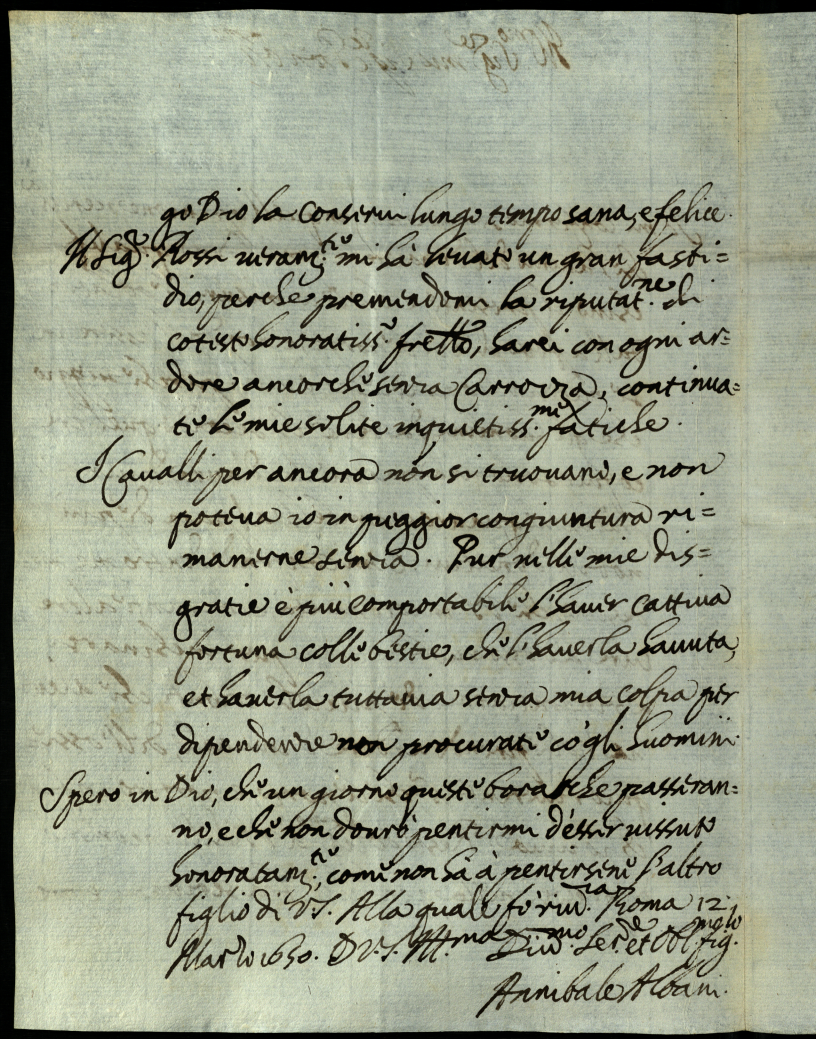 go Dio la conservi lungo tempo sana, e felice.
Il Sig.r Rossi veram.te mi hà levato un gran fasti=
dio, perche premendomi la riputat.ne di
cotesto honoratiss.o fretto, harei con ogni ar=
dore ancorche senza Carrozza, continua=
te le mie solite inquietiss.me fatiche.
I Cavalli per ancora non si truovano, e non
poteva io in peggior congiuntura ri=
manerne senza. Pur nelle mie dis=
gratie è più comportabile l'haver cattiva
fortuna colle bestie, che l'haverla havuta,
et haverla tuttavia senza mia colpa per
dipendenze non procurate cò gli huomini.
Spero in Dio, che un giorno queste borasche passeran=
no, e che non dovrò pentirmi d'esser vissuto
honoratam.te, come non hà à pentirsene l'altro
figlio di V.S. Alla quale fò riu.za Roma 12.
Marzo 1650. D V.S. Ill.ma Diu.mo Ser.re et Obl.mo fig.lo
Annibale Albani.